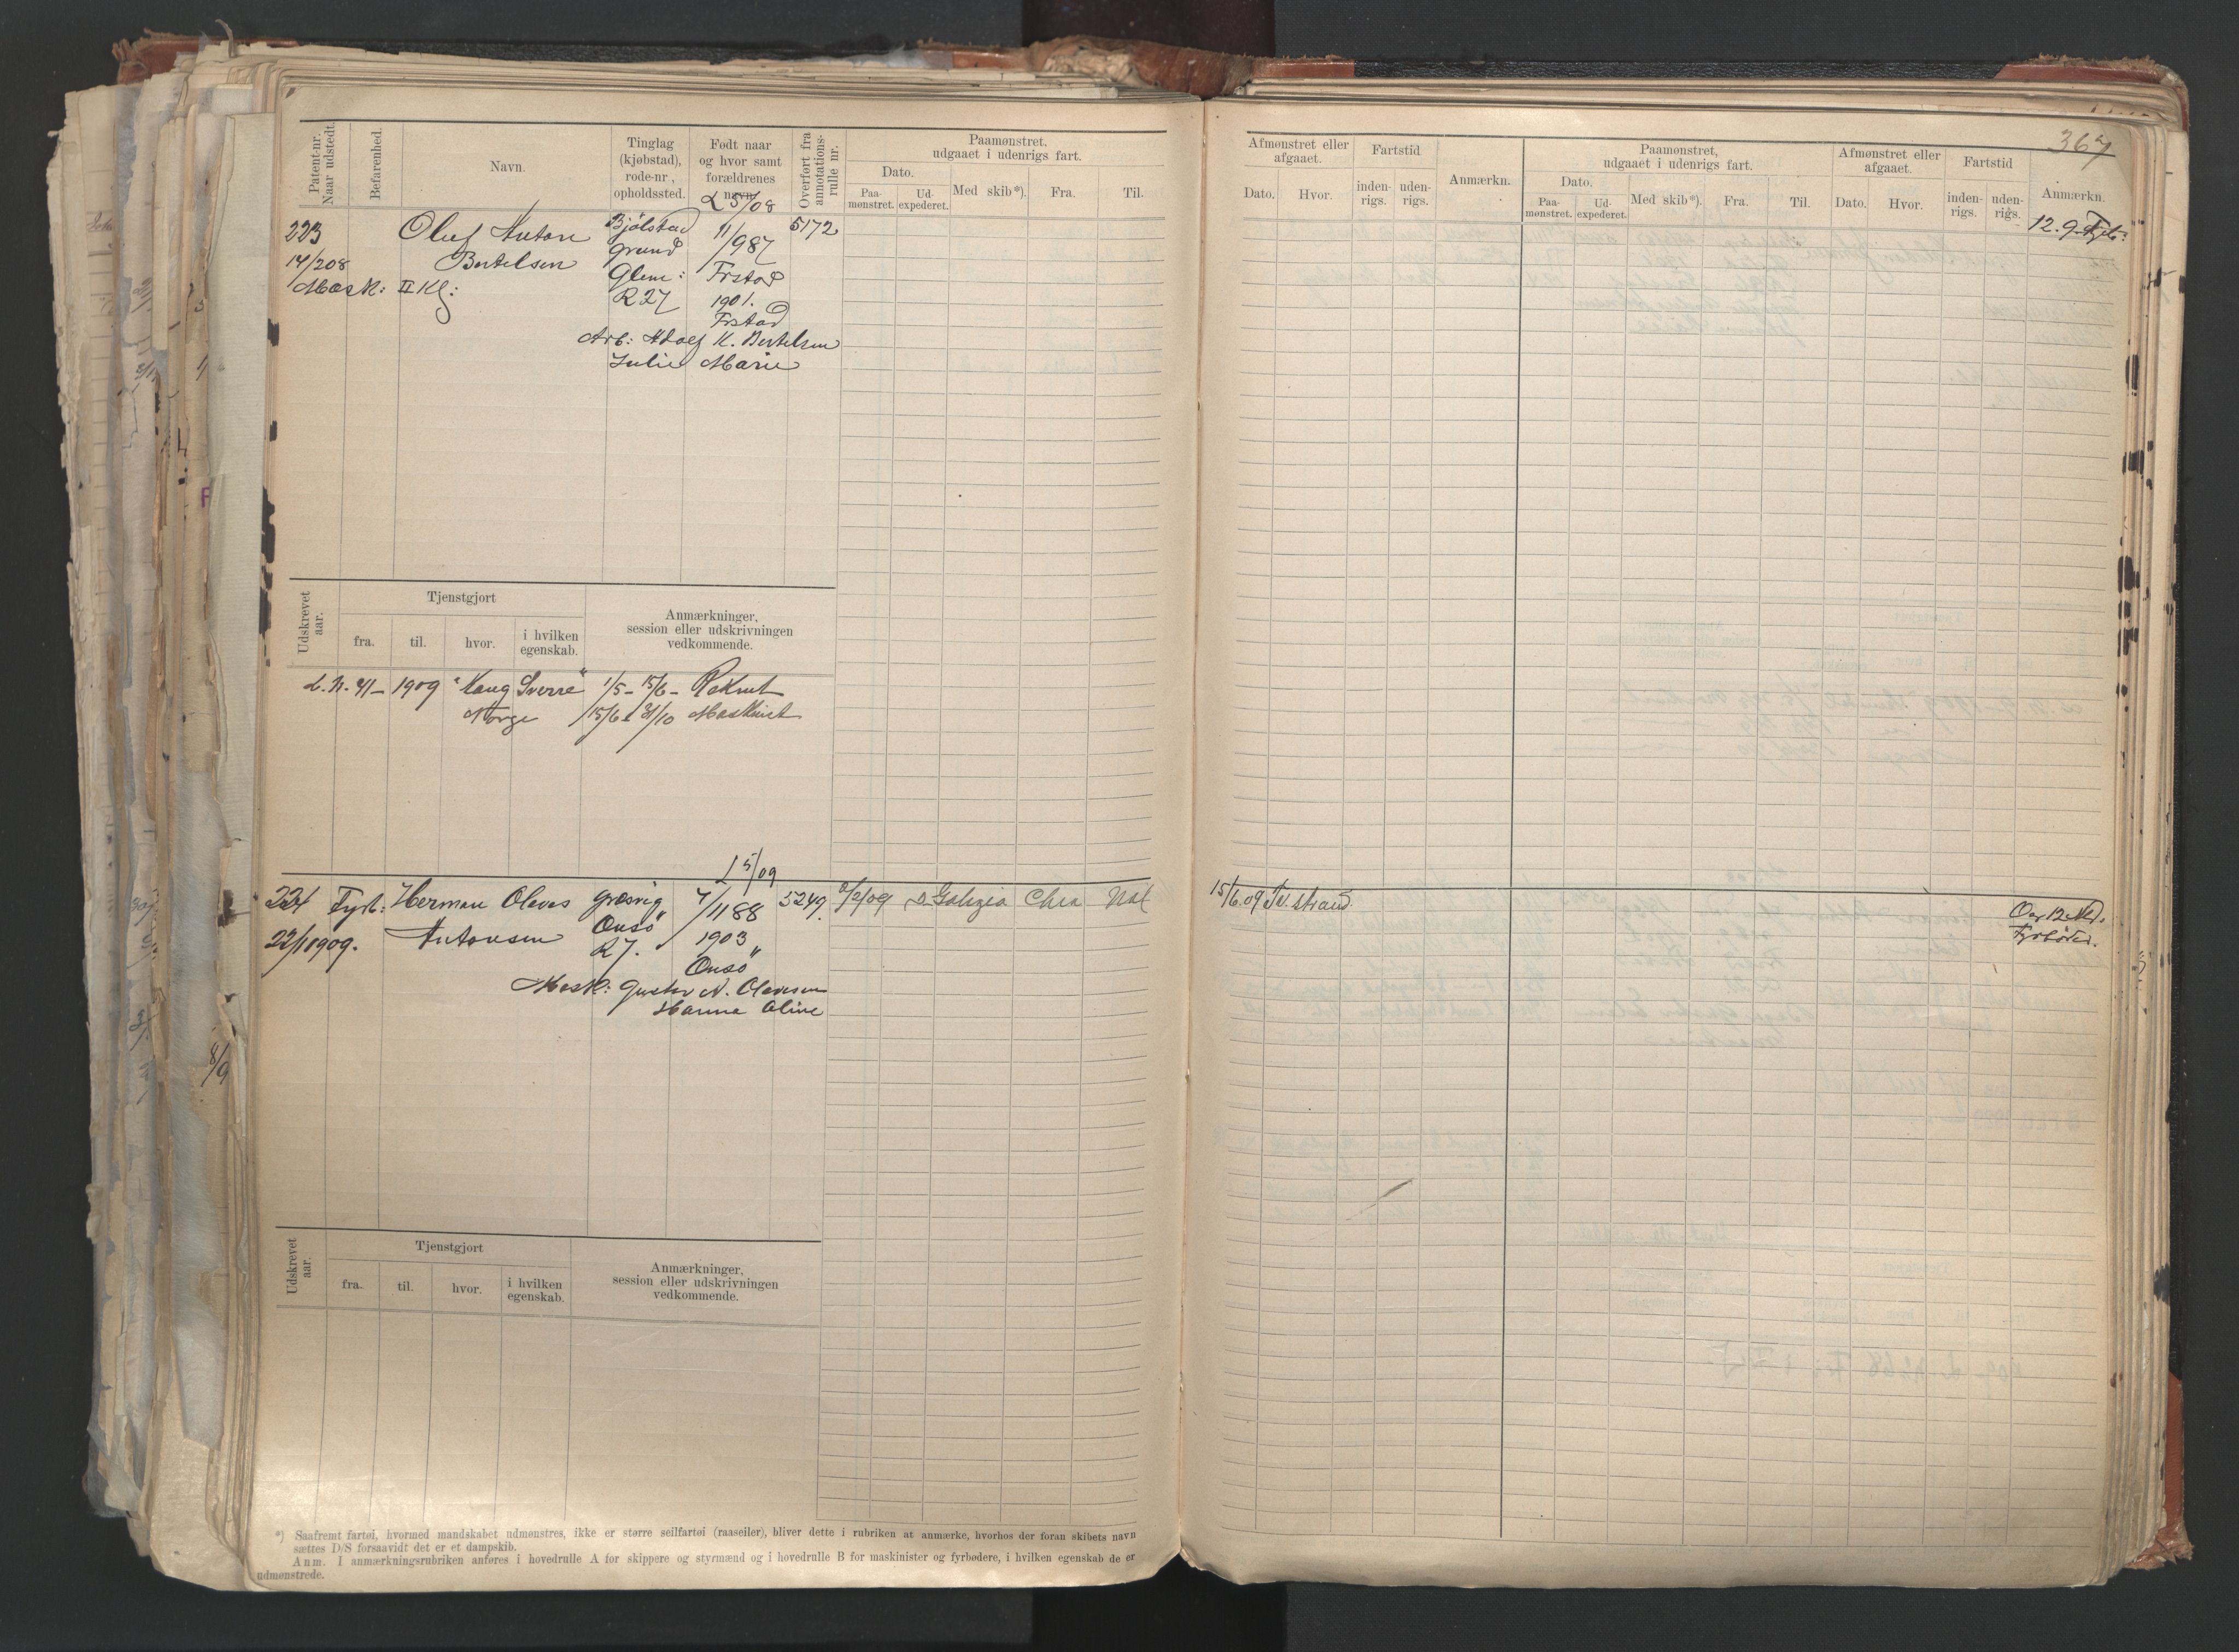 Patent-nr.
Naar udstedt.
Befarenhed.
Navn.
Tinglag
(kjøbstad),
rode-nr.,
opholdssted.
Født naar
og hvor samt
forældrenes
navn
Overført fra
annotations-
rulle nr.
Paamønstret,
udgaaet i udenrigs fart.
Dato.
Paa-
mønstret.
Ud-
expederet.
Med skib*).
Fra.
Til.
5/08
223
14/208
Mask: II Kl:
Oluf Anton
Bertelsen
Bjölstad
grund
Glem:
R 27
11/987
Frstad
1901.
Frstad
5172
Arb: Adolf K. Bertelsen
Julie Marie
Udskrevet
aar.
Tjenstgjort
fra.
til.
hvor.
i hvilken
egenskab.
Anmærkninger,
session eller udskrivningen
vedkommende.
L. N. 41 - 1909 "Kong Sverre" 1/5 - 15/6 -
Norge 15/6 - 31/10 Maskinist
15/09
224
22/1 1909.
Fyrb:
Herman Olaves
Antonsen
græsvig
Onsö
R 7.
7/11 88
1903
Onsö
5249.
/2/09
Galizia
Chra
Mask: Gustav N. Olavesen
Hanna Oline
Udskrevet
aar.
Tjenstgjort
fra.
til.
hvor.
i hvilken
egenskab.
Anmærkninger,
session eller udskrivningen
vedkommende.
*) Saafremt fartøi, hvormed mandskabet udmønstres, ikke er større seilfartøi (raaseiler), bliver dette i rubriken at anmærke, hvorhos der foran skibets navn
sættes D/S forsaavidt det er et dampskib.
Anm. I anmærkningsrubriken anføres i hovedrulle A for skippere og styrmænd og i hovedrulle B for maskinister og fyrbødere, i hvilken egenskab de er
udmønstrede.
367
Afmønstret eller
afgaaet.
Dato.
Hvor.
Fartstid
inden-
rigs.
uden-
rigs.
Anmærkn.
Paamønstret,
udgaaet i udenrigs fart.
Dato.
Paa-
mønstret.
Ud-
expederet.
Med skib*).
Fra.
Til.
Afmønstret eller
afgaaet.
Dato.
Hvor.
Fartstid
inden-
rigs.
uden-
rigs.
Anmærkn.
12. 9.
15/6.09 Tv. strand
Fyrböder.